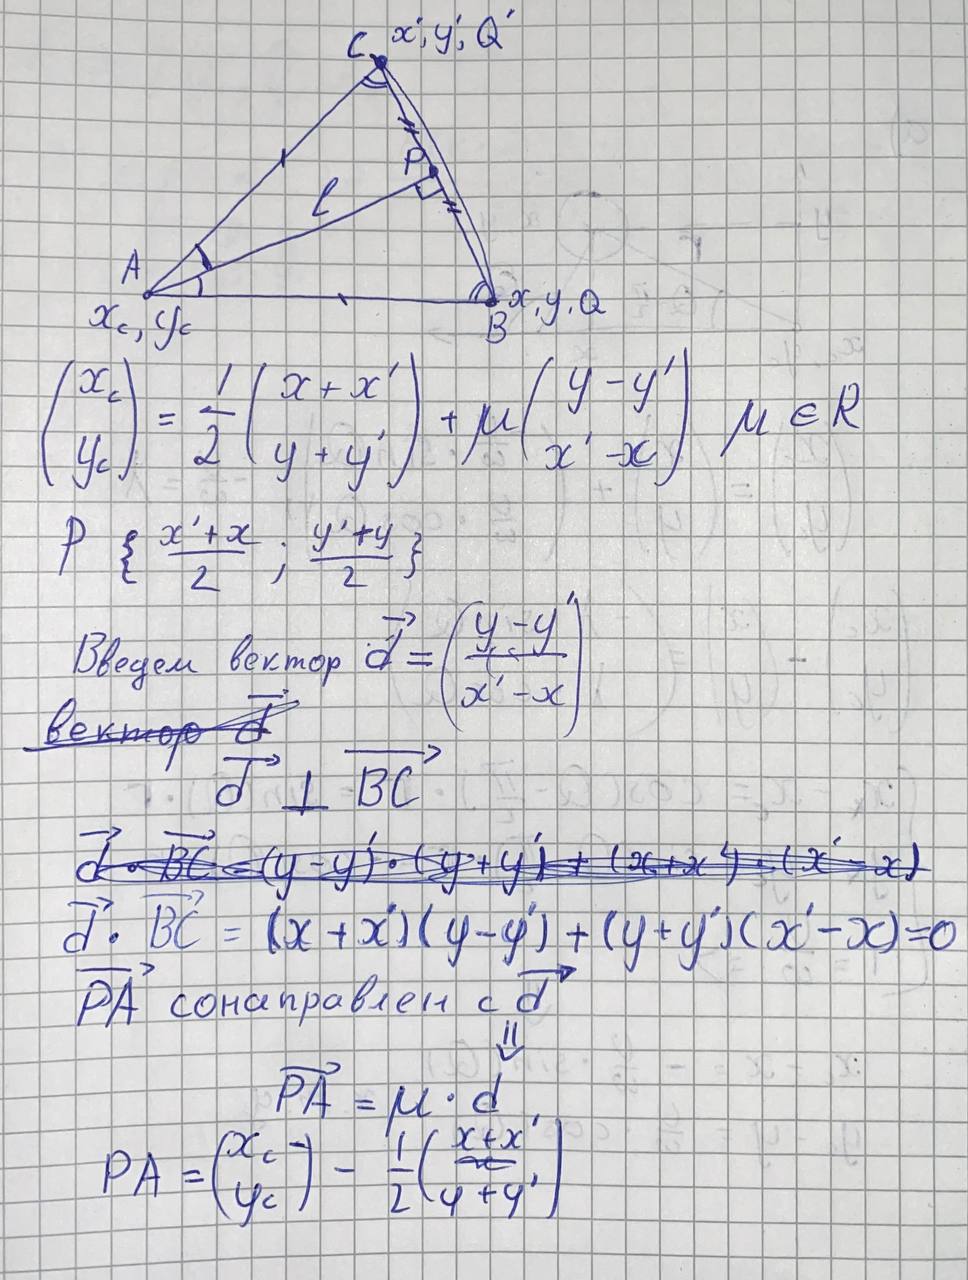 C x′, y′, Q′
P
l
A
x_c, y_c
B x, y, Q
(x_c y_c) = 1/2 (x + x′ y + y′) + μ (y − y′ x′ − x) μ ∈ R
P { x′+x/2 ; y′+y/2 }
Введем вектор d⃗ = (y − y′ x′ − x)
вектор d⃗
d⃗ ⊥ BC⃗
d⃗ · BC⃗ = (y − y′) · (y + y′) + (x + x′) · (x′ − x)
d⃗ · BC⃗ = (x + x′)(y − y′) + (y + y′)(x′ − x) = 0
PA⃗ сонаправлен с d⃗
⇓
PA⃗ = μ · d
PA = (x_c y_c) − 1/2 (x + x′ y + y′)